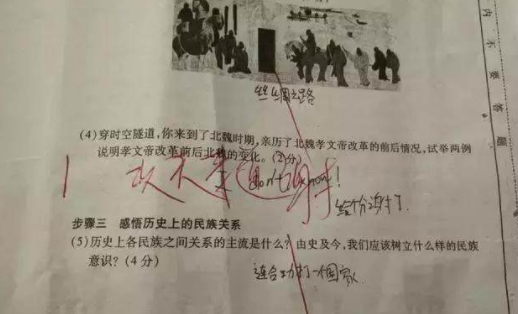 丝绸之路
(4)穿时空隧道,你来到了北魏时期,亲历了北魏孝文帝改革的前后情况,试举两例
说明孝文帝改革前后北魏的变化。(2分)
I don't know!
给份谢了
步骤三 感悟历史上的民族关系
(5)历史上各民族之间关系的主流是什么?由史及今,我们应该树立什么样的民族
意识?(4分)
联合功打一个国家
内不要答题